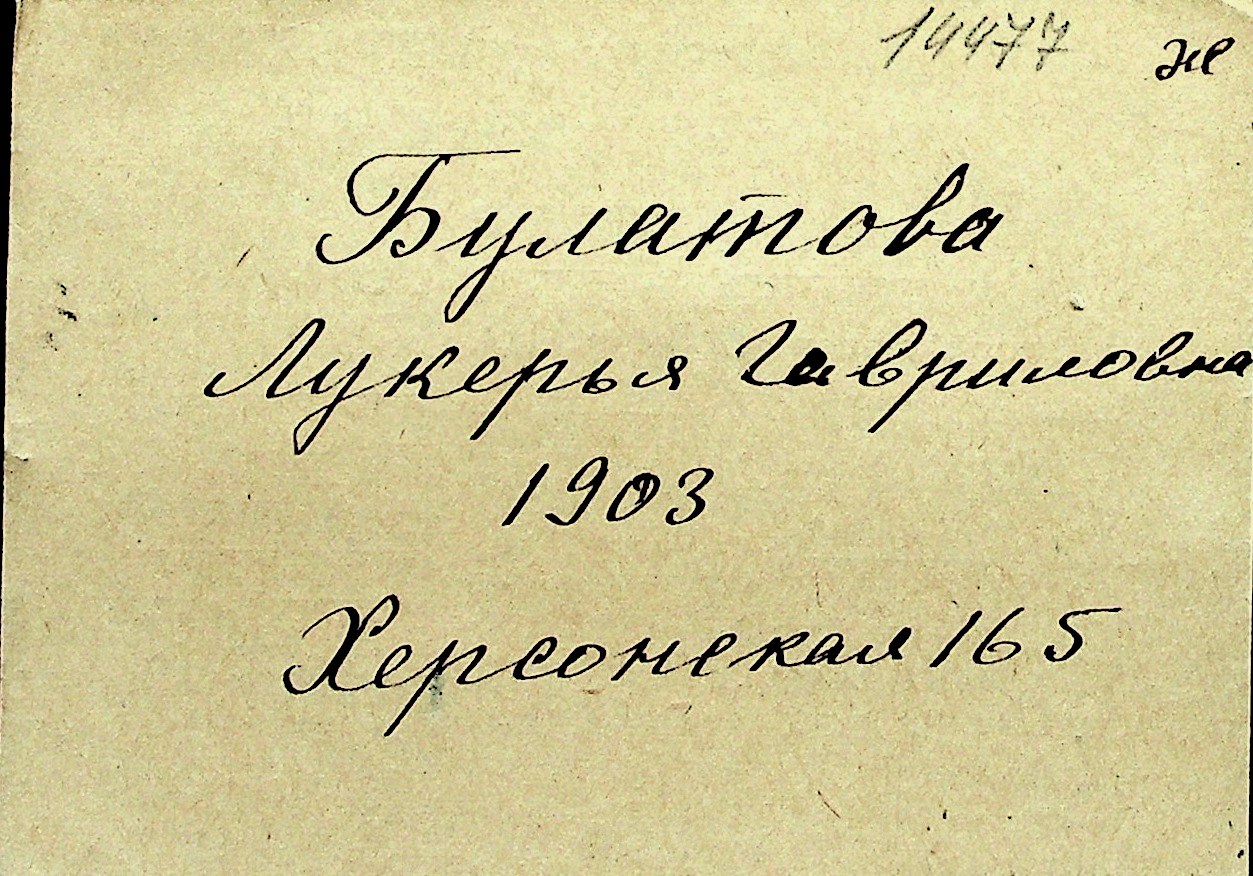 14477 же
Булатова
Лукерья Гавриловна
1903
Херсонская 165